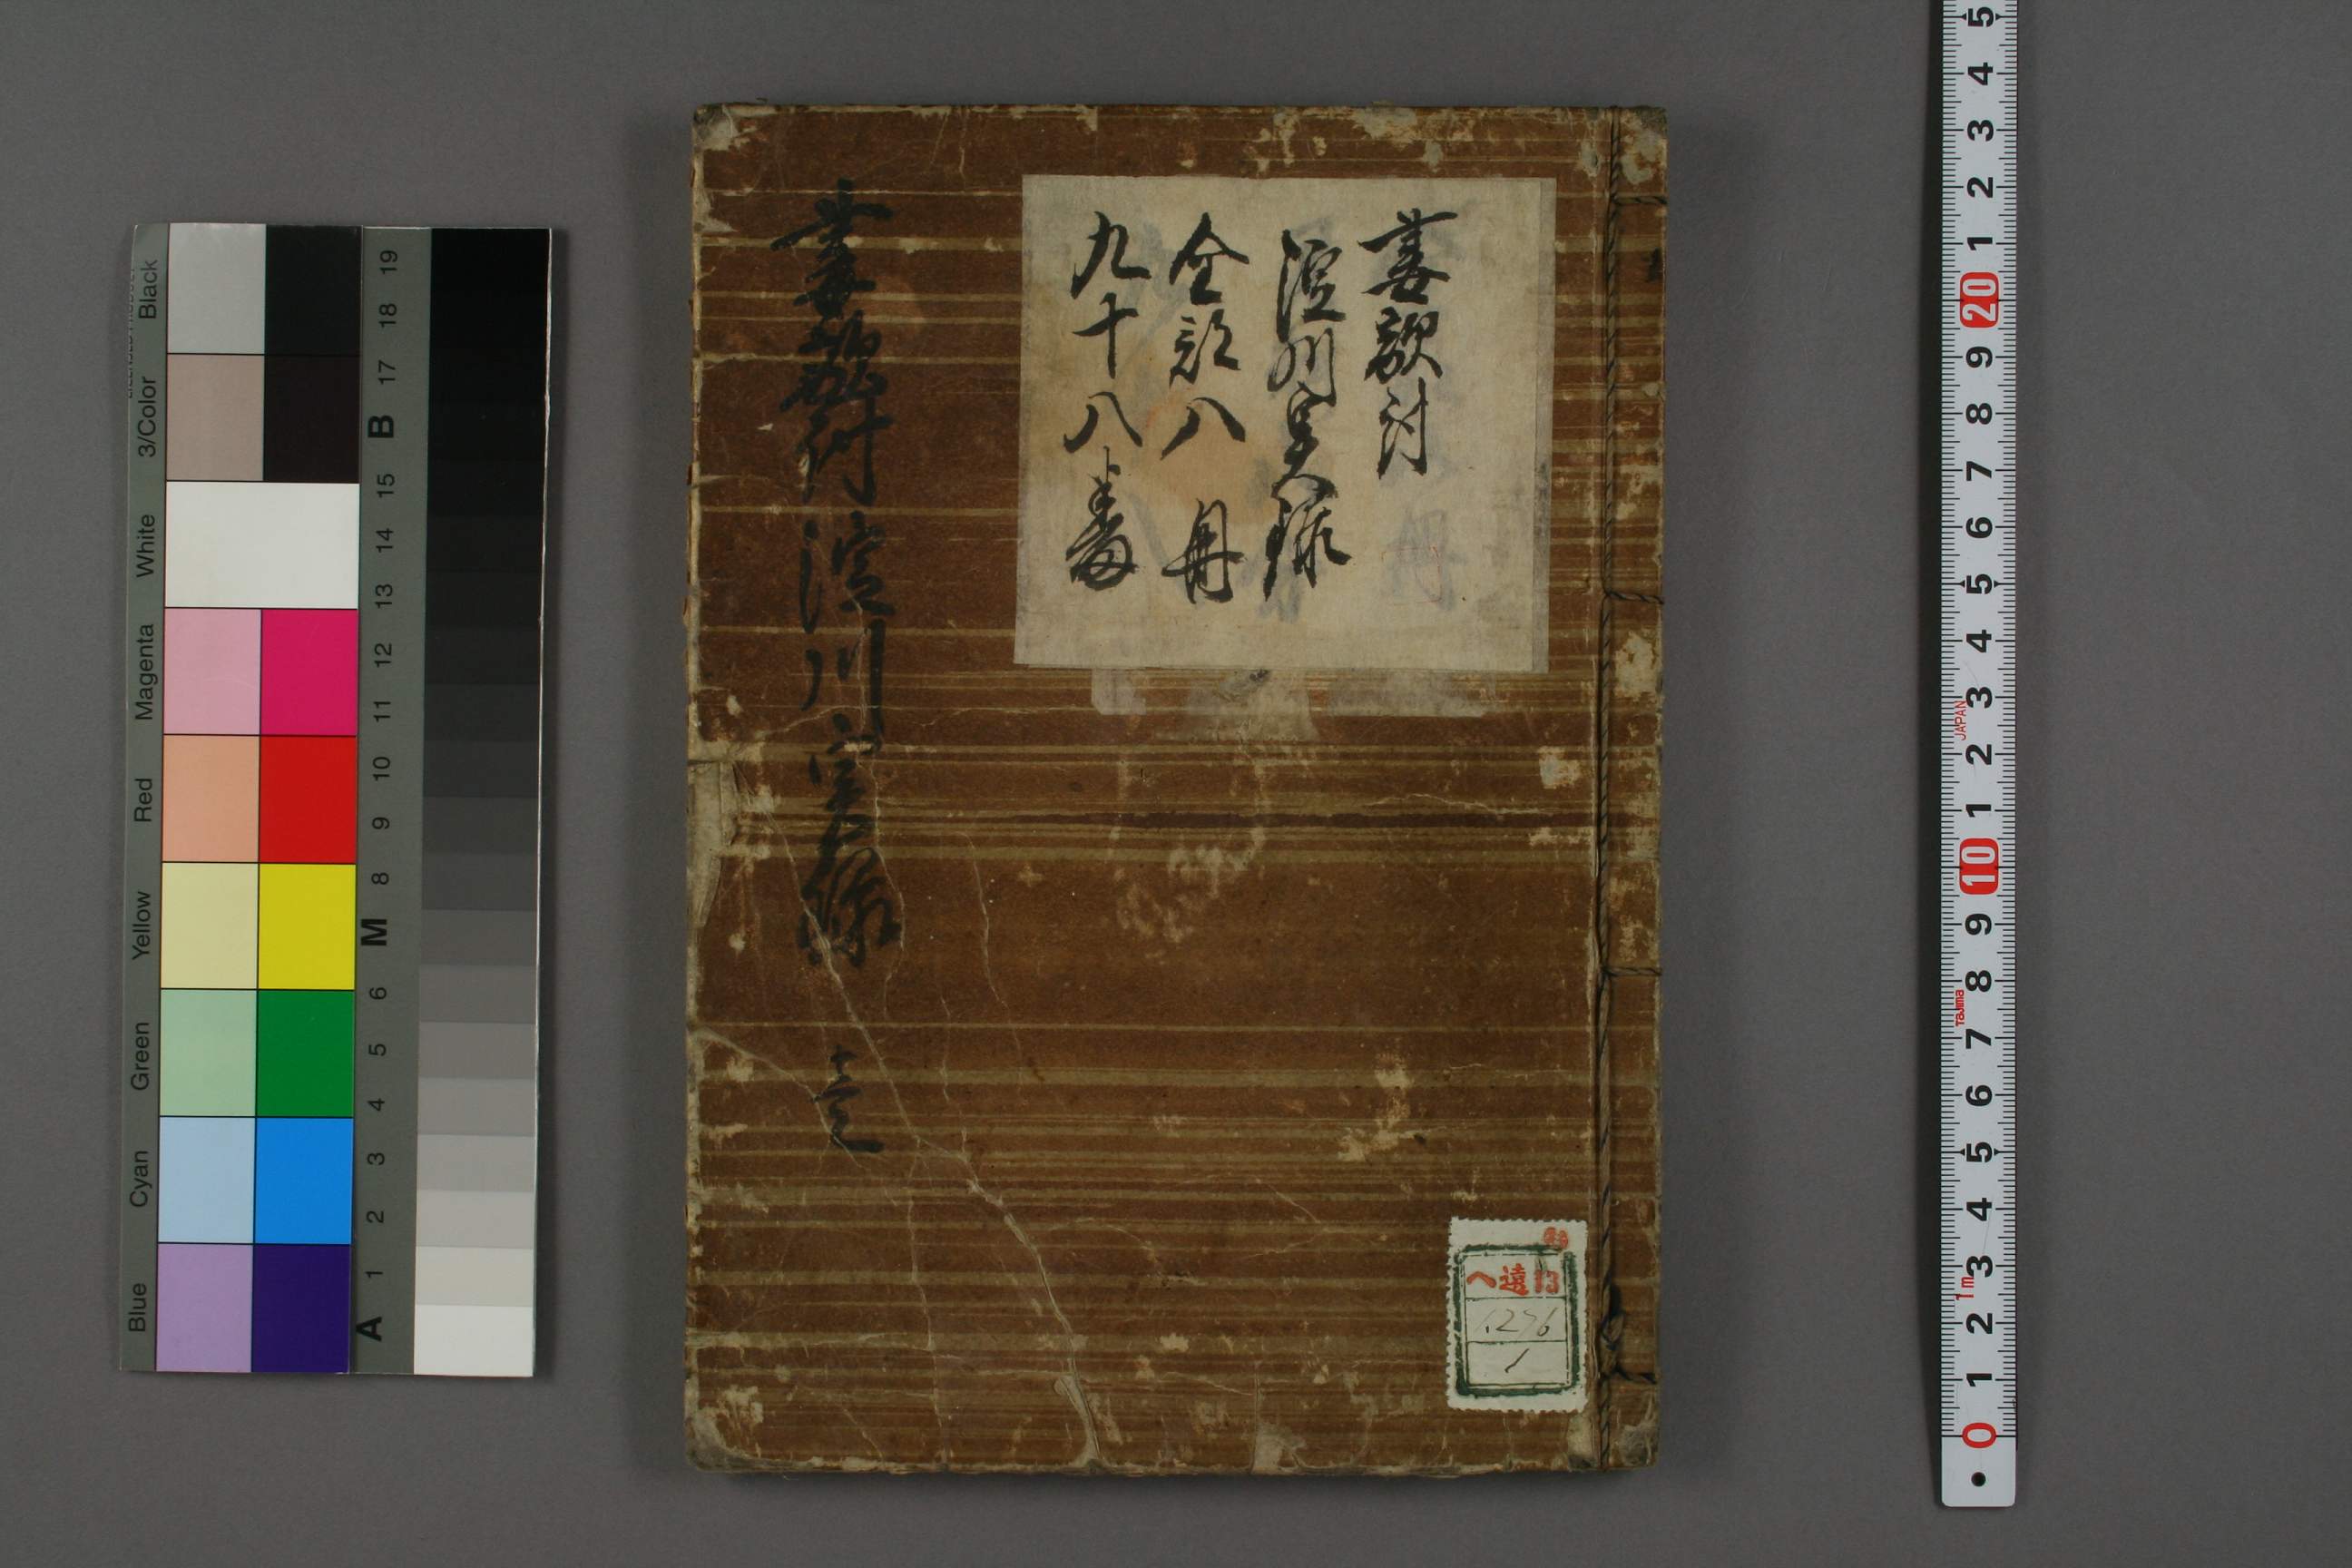 妻敵討
淀川実録
全部八冊
九十八番
妻敵討 淀川実録 壱
ヘ遠13
1276
1
Black
3/Color
White
Magenta
Red
Yellow
Green
Cyan
Blue
19
18
17
B
15
14
13
12
11
10
9
8
M
6
5
4
3
2
1
A
5
4
3
2
1
20
9
8
7
6
5
4
3
JAPAN
2
1
10
9
8
Tajima
7
6
5
4
3
1m
2
1
0